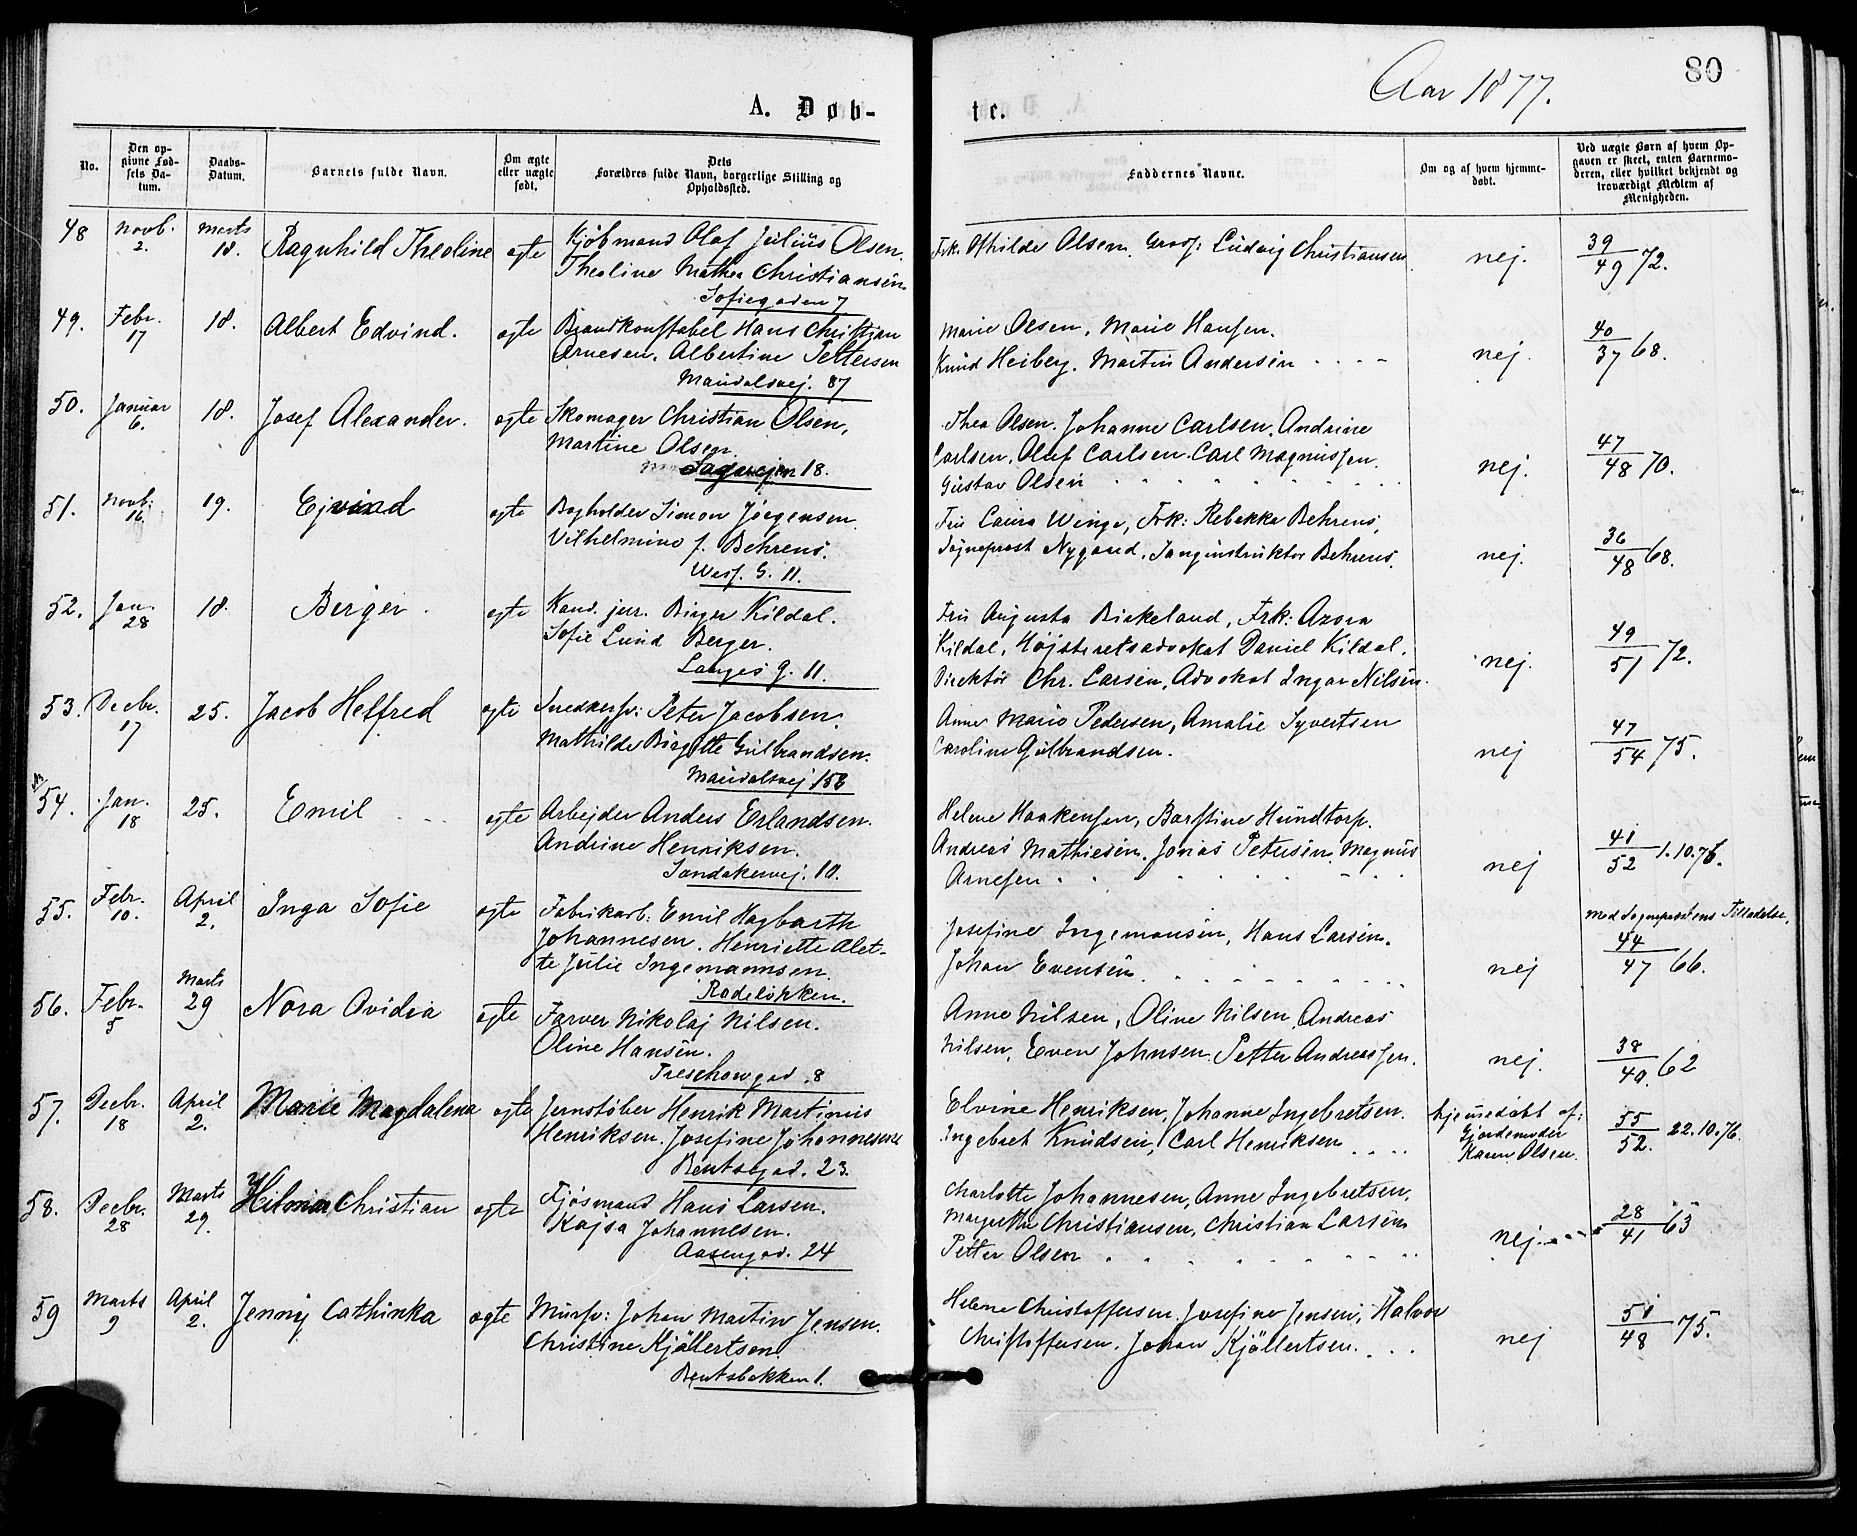 Aar 1877.
80
A. Døb-
te.
No.
Den op-
givne Fød-
sels Da-
tum.
Daabs-
Datum.
Barnets fulde Navn.
Om ægte
eller uægte
født.
Dets
Forældres fulde Navn, borgerlige Stilling og
Opholdssted.
Faddernes Navne.
Om og af hvem hjemme-
døbt.
Ved uægte Børn af hvem Op-
gaven er skeet, enten Barnemo-
deren, eller hvilket bekjendt og
troværdigt Medlem af
Menigheden.
48 Novb. 2. Marts 18. Ragnhild Theoline ægte Kjøbmand Olaf Julius Olsen.
Theoline Mathea Christiansen
Sofiegaden 7
Frk. Othilde Olsen. Gross: Ludvig Christiansen nej. 39/49 72.
49. Febr. 17 18. Albert Edvind. ægte Brandkonstabel Hans Christian
Arnesen. Albertine Pettersen
Maridalsvej. 87
Marie Olsen, Marie Hansen.
Knud Heiberg. Martin Andersen nej. 40/37 68.
50. Januar 6. 18. Josef Alexander. ægte Skomager Christian Olsen,
Martine Olsen.
Sagveien 18.
Thea Olsen. Johanne Carlsen. Andrine
Carlsen. Olaf Carlsen. Carl Magnussen.
Gustav Olsen nej. 47/48 70.
51. Novb. 16. 19. Ejvind ægte Bogholder Simon Jørgensen
Vilhelmine f. Behrens.
Wess. G. 11.
Fru Laura Winge, Frk: Rebekka Behrens,
Sogneprest Nygaard. Sanginstruktør Behrens. nej. 36/48 68.
52. Jan. 28 18. Birger. ægte Kand. jur. Birger Kildal.
Sofie Lund Berger.
Langes g. 11.
Fru Augusta Birkeland, Frk: Azora
Kildal, Højesteretsadvokat Daniel Kildal.
Direktør Chr. Larsen, Advokat Ingar Nilsen. nej. 49/51 72.
53. Decbr. 17 25. Jacob Helfred ægte Snedkersv: Peter Jacobsen.
Mathilde Birgitte Gulbrandsen.
Maridalsvej 156
Anne Marie Pedersen, Amalie Syvertsen
Caroline Gulbrandsen. nej 47/54 75.
54. Jan. 18 25. Emil ægte Arbejder Anders Erlandsen.
Andrine Henriksen.
Sandakervej. 10.
Helene Haakensen, Barstine Hundtorp.
Andreas Mathiesen. Jonas Petersen Magnus
Arnesen nej 41/52 1.10.76.
55. Febr. 10. April 2. Inga Sofie ægte Fabrikarb: Emil Hagbarth
Johannesen. Henriette Alet-
te Julie Ingemannsen
Rodeløkken.
Josefine Ingemansen, Hans Larsen.
Johan Evensen nej med Sogneprestens Tilladelse.
44/47 66.
56. Febr. 5 Marts 29 Nora Ovidia ægte Farver Nikolaj Nilsen.
Oline Hansen.
Treschowgad. 8
Anne Nilsen, Oline Nilsen Andreas
Nilsen, Even Johnsen. Petter Andreassen. nej. 38/40. 62
57. Decbr. 18 April 2. Marie Magdalena ægte Jernstøber Henrik Martinus
Henriksen. Josefine Johannesene
Bentsegad. 23.
Elvine Henriksen, Johanne Ingebretsen.
Ingebret Knudsen, Carl Henriksen hjemmedøbt af:
Gjordemoder
Karen Olsen. 55/52. 22.10.76.
58. Decbr. 28 Marts 29. Hilmar Christian ægte Fjøsmand Hans Larsen.
Kajsa Johannesen.
Aasengad. 24
Charlotte Johannesen, Anne Ingebretsen.
Margrethe Christiansen, Christian Larsen
Petter Olsen nej. 28/41 63
59 Marts 9 April 2. Jenny Cathinka ægte Mursv: Johan Martin Jensen.
Christine Kjällertsen.
Bentsbakken 1.
Helene Christoffersen Josefine Jensen, Halvor
Christoffersen. Johan Kjällertsen. nej 51/48 75.